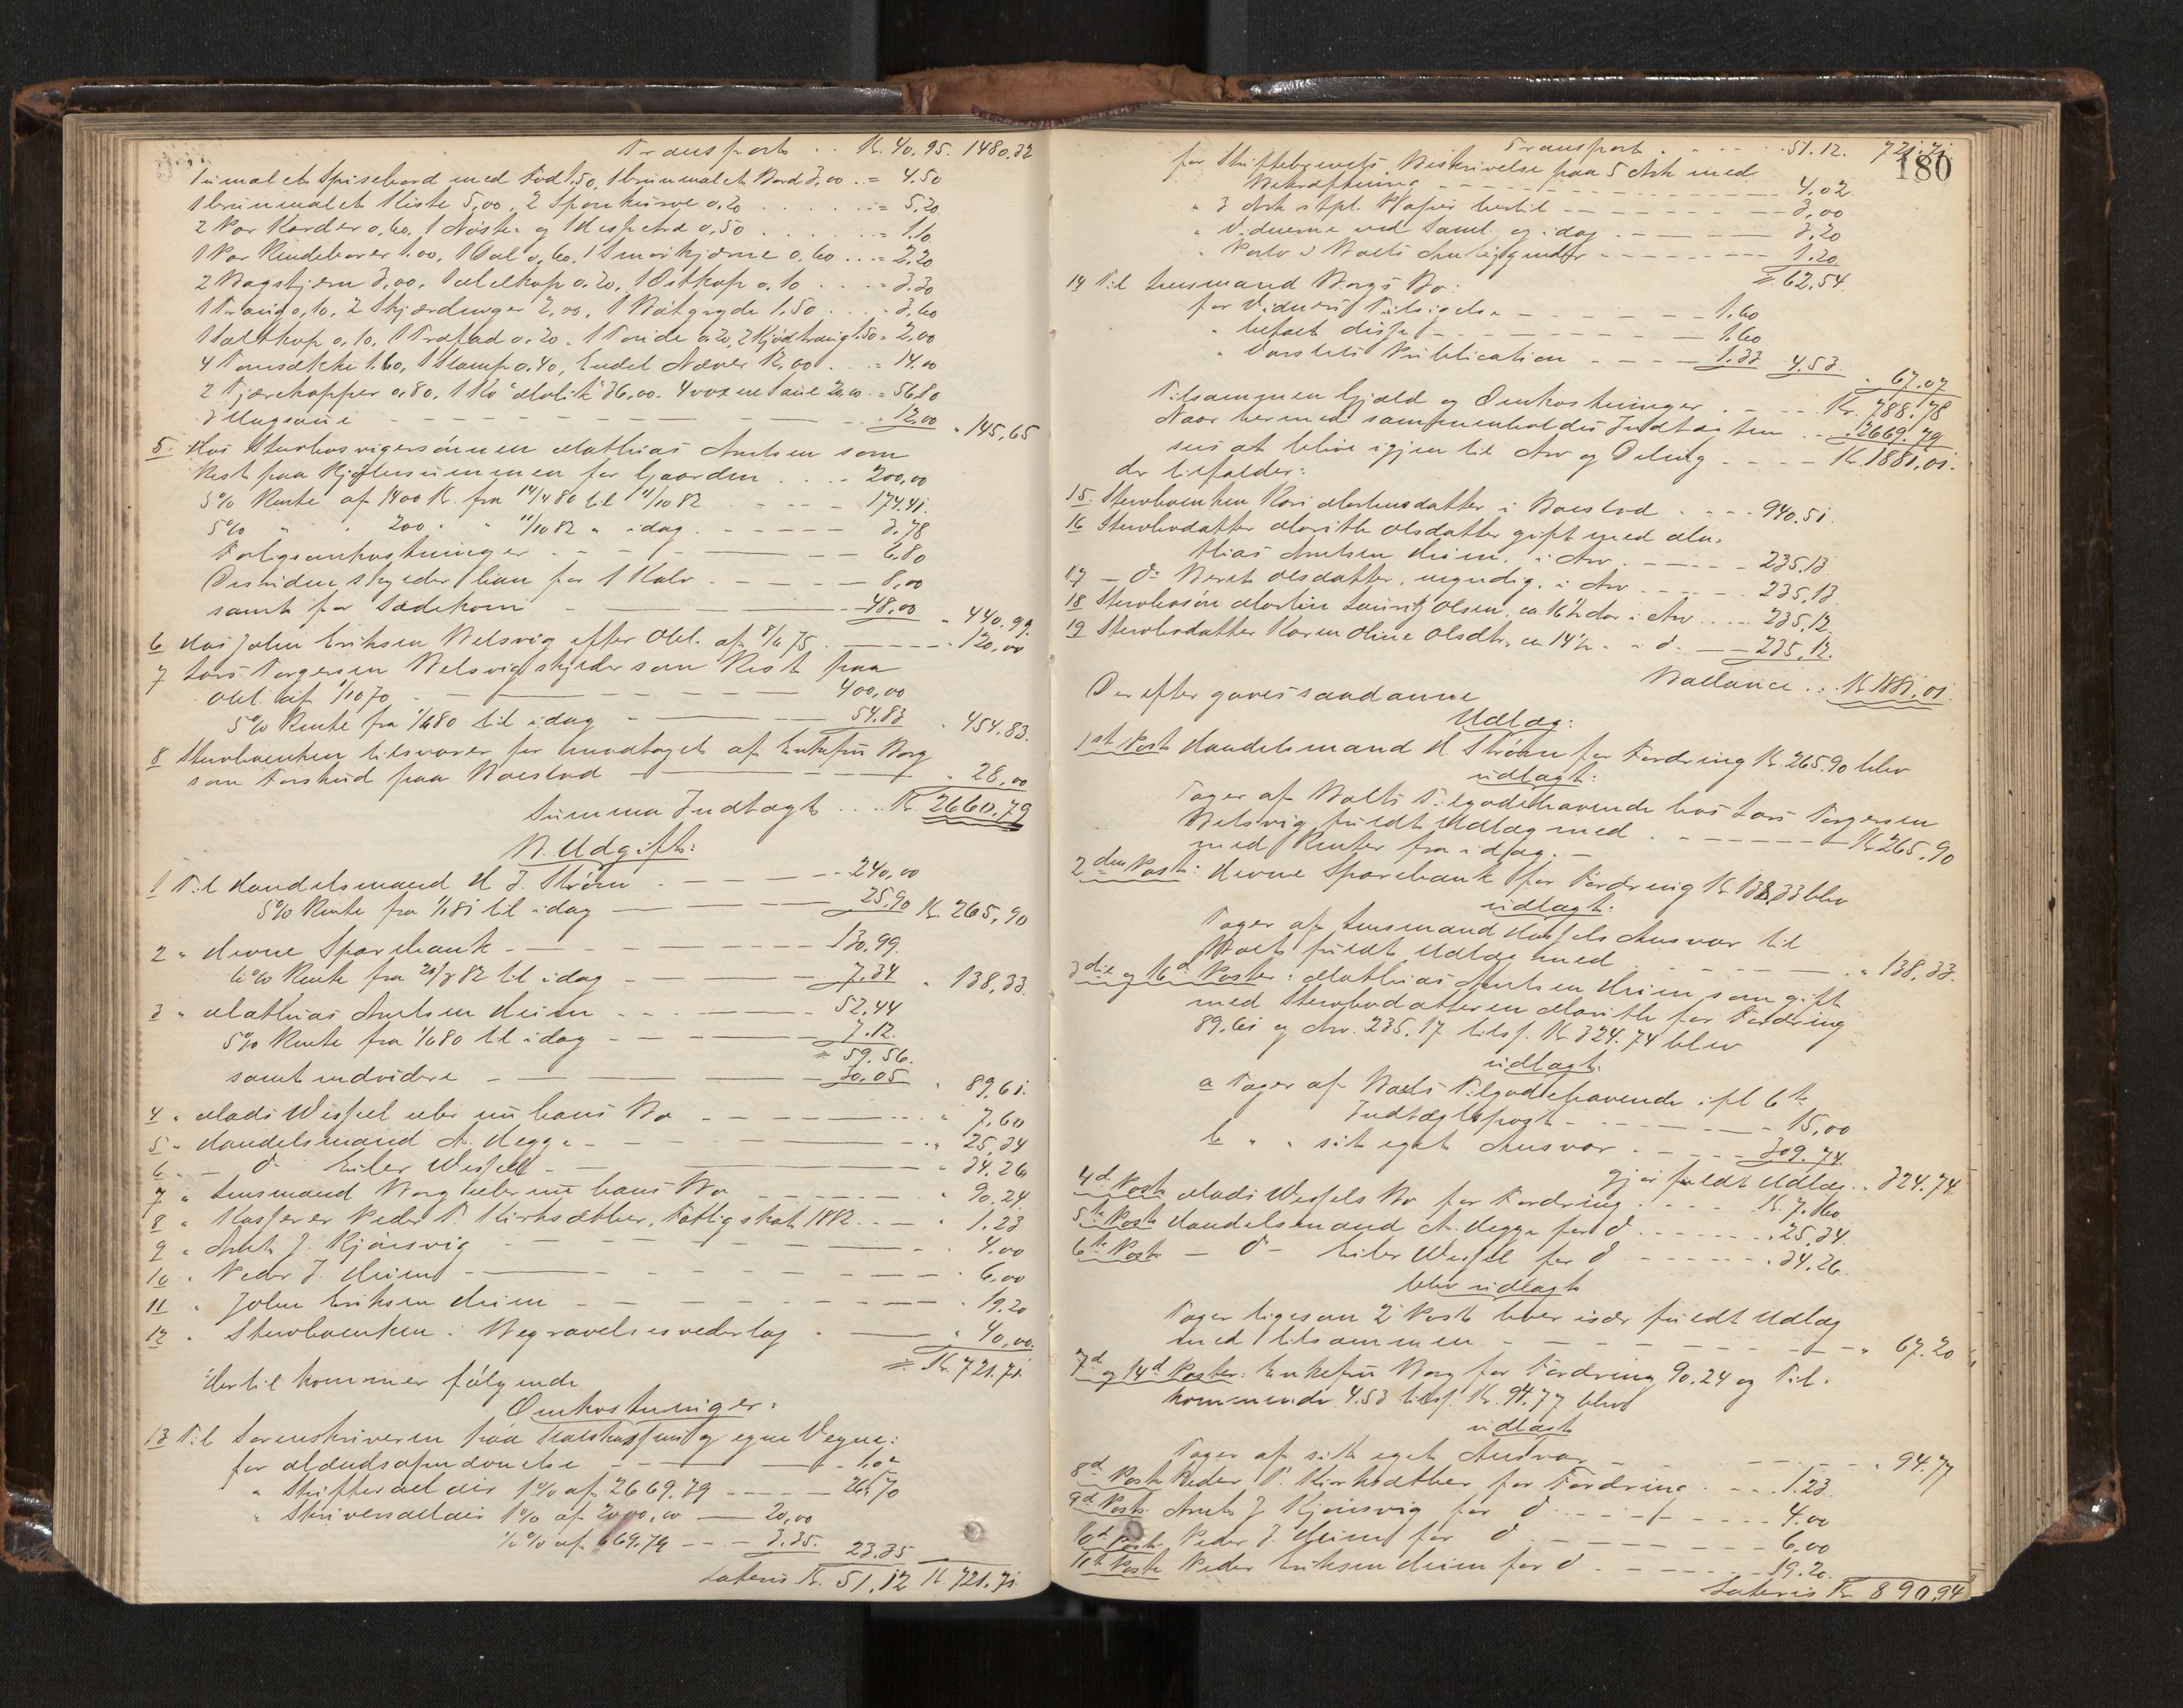 Transport . . K. 40.95. 1480.32
1 umalet Spisebord med Fod 1.50, 1 brunmalet Bord 3,00 . = 4.50
1 brunmalet Kiste 5,00, 2 Sponkurve 0.20 . . . = 5,20
2 Par Karder 0,60, 1 Nøste og 1 Hespetræ 0,50 . . . = 1.10
1 Par 1.00, 1 0,60, 1 Smørkjerne 0.60 . . . = 2,20
2 3,00, 0.20, 1 Ostkop 0.10 . . . = 3.30
1 0,10, 2 2,00, 1 1,50 . . . 3,60
1 Saltkop 0.10, 1 Træfad 0.20. 1 0.20, 2 1.50 = 2,00
4 1.60, 1 Stamp 0.40, Endel Næver 12,00 . . = 14.00
2 Tjærekopper 0.80, 1 Ko 36,00. 4 voxne Sauer = 56.80
3 Ungsauer - - - 12,00 " 145,65
5. Hos Stervbosvigersønnen Mathias Arntsen som
Rest paa Kjøbesummen for Gaarden . . . 200,00
5% Rente af 1400 K. fra 14/4 80 til 11/10 82 - - - 174.41.
5% " " 200 " " 11/10 82 " idag . - - - 3.78
Forligsomkostninger - - - 6.80
Desuden skylder han for 1 Kalv - - - 8,00
samt for Sædekorn - - - 48,00 " 440.99.
6 Hos John Eriksen Belsvig efter Obl. af 8/6 75 . - - - 120,00
7 Lars Torgersen Belsvig skylder som Rest paa
Obl. af 1/10 70 - - - 400,00
5% Rente fra 1/6 80 til idag - - - 54.83 " 454.83.
8 Stervboenken tilsvarer for modtaget af Enkefru Borg
som Forskud paa Boeslod - - - " 28,00
Summa Indtægt . . . K. 2669.79
B. Udgift:
1 Til Handelsmand H. J. Strøm . - - - 240,00
5% Rente fra 1/1 81 til idag - 25,90 K. 265,90
2 " Hevne Sparebank - - - 130.99.
6% Rente fra 20/3 82 til idag - 7.34 " 138,33.
3 " Mathias Arntsen Heim . - - - 52.44
5% Rente fra 1/6 80 til idag - - - 7.12.
= 59.56.
samt endvidere - - - 30.05 " 89,61.
4 " Mads Wessel eller nu hans Bo - - - " 7,60
5 " Handelsmand A. Hegge - - - " 25,34
6 - d- Eiler Wessel - - - " 34.26
7 " Lensmand Borg eller nu hans Bo - - - " 90.24
8 " Kasserer Peder P. Kirksæther, Fattigskat 1882 . . - " 1.23
9 " Arnt J. Kjønsvig - - - " 4.00
10 " Peder J. Heim - - - " 6,00
11 " John Eriksen Heim - - - " 19.20
12 " Stervboenken i Begravelsesvederlag . - " 40,00.
= K. 721.71
Hertil kommer følgende
Omkostninger:
13 Til Sorenskriveren paa Statskassens og egne Vegne:
for - - -
" Skiftesaldir 1% af 2669.79 - - - 26.70
" Skriversaldir 1% af 2000,00 - 20,00
1/2 % af 669.79 - - - 3.35. 23.35
Lateris K. 51.12 K. 721.71
180
Transport . - - - . 51.12. 721.71
for Skiftebrevets Beskrivelse paa 5 Ark med
Bekræftning - - - 4.02.
" 3 Ark stpl. Papir hertil - - - 3,00
" Vidnerne ved Saml. og idag . - - - 3,20
" Porto i Boets Anliggender - - - 1.20
= 62.54.
14 Til Lensmand Borgs Bo:
for Vidners Tilsigelse - - - 1.60
" befaet disse - - - 1.60
" Varslets Publication - - - 1.33 4.53. " 67.07
Tilsammen Gjæld og Omkostninger . . - - K. 788.78
Naar hermed sammenholdes Indtægten . . 2669.79
sees at blive igjen til Arv og Deling . - - - K. 1881,01.
der tilfalder:
15. Stervboenken Kari i Boeslod . . - - 940.51.
16 Stervbodatter Marith Olsdatter gift med Ma-
thias Arntsen Heim, i Arv . - - - 235.13
17 - do Berit Olsdatter, myndig, i Arv . - - - 235,13.
18 Stervbosøn Martin Laurits Olsen, ca 16 1/2 Aar i Arv . . - - 235,12.
19 Stervbodatter Karen Oline Olsdtr, ca 14 1/2 - - i d. - - 235,12.
Ballance . . K. 1881,01.
Derefter gaves saadanne
Udlæg:
1st Post Handelsmand H. Strøm for Fordring K. 265.90 blev
udlagt:
Tager af Boets Tilgodehavende hos Lars Torgersen
Belsvig fuldt Udlæg med . . - - - K. 265,90
med Renter fra idag. -
2den Post: Hevne Sparebank for Fordring K. 138,33 blev
udlagt:
Tager af Lensmand Ansvar til
Boet fuldt Udlæg med . - - - " 138,33.
3die og 16d Poster: Mathias Arntsen Heim som gift
med Stervbodatteren Marith for Fordring
89.61 og Arv. 235.17 tils. K. 324.74 blev
udlagt:
a Tager af Boets Tilgodehavende ifl 6te
Indtægtspost - - - 15,00
b " " sit eget Ansvar . - - - 309.74.
gjør fuldt Udlæg . . 324.74.
4d Post Mads Wessels Bo for Fordring . . . . K. 7.60.
5te Post Handelsmand A. Hegge for d - - - . 25,34.
6te Post - d- Eiler Wessel for d - - - . 34.26.
blev udlagt
Tager ligesom 2 Post hver især fuldt Udlæg
med tilsammen - - - " 67.20
7d og 14d Poster: Enkefru Borg for Fordring 90.24 og Til-
kommende 4.53 tils. K. 94.77 blev
udlagt
Tager af sit eget Ansvar - - - " 94.77
8d Post Peder P. Kirksæther for Fordring . - - . 1.23.
9d Post. Arnt J Kjønsvig for d - - - 4.00
10d Post. Peder J. Heim for d - - - 6.00
11te Post Peder Eriksen Heim for d - - - 19.20.
Lateris K. 890,94